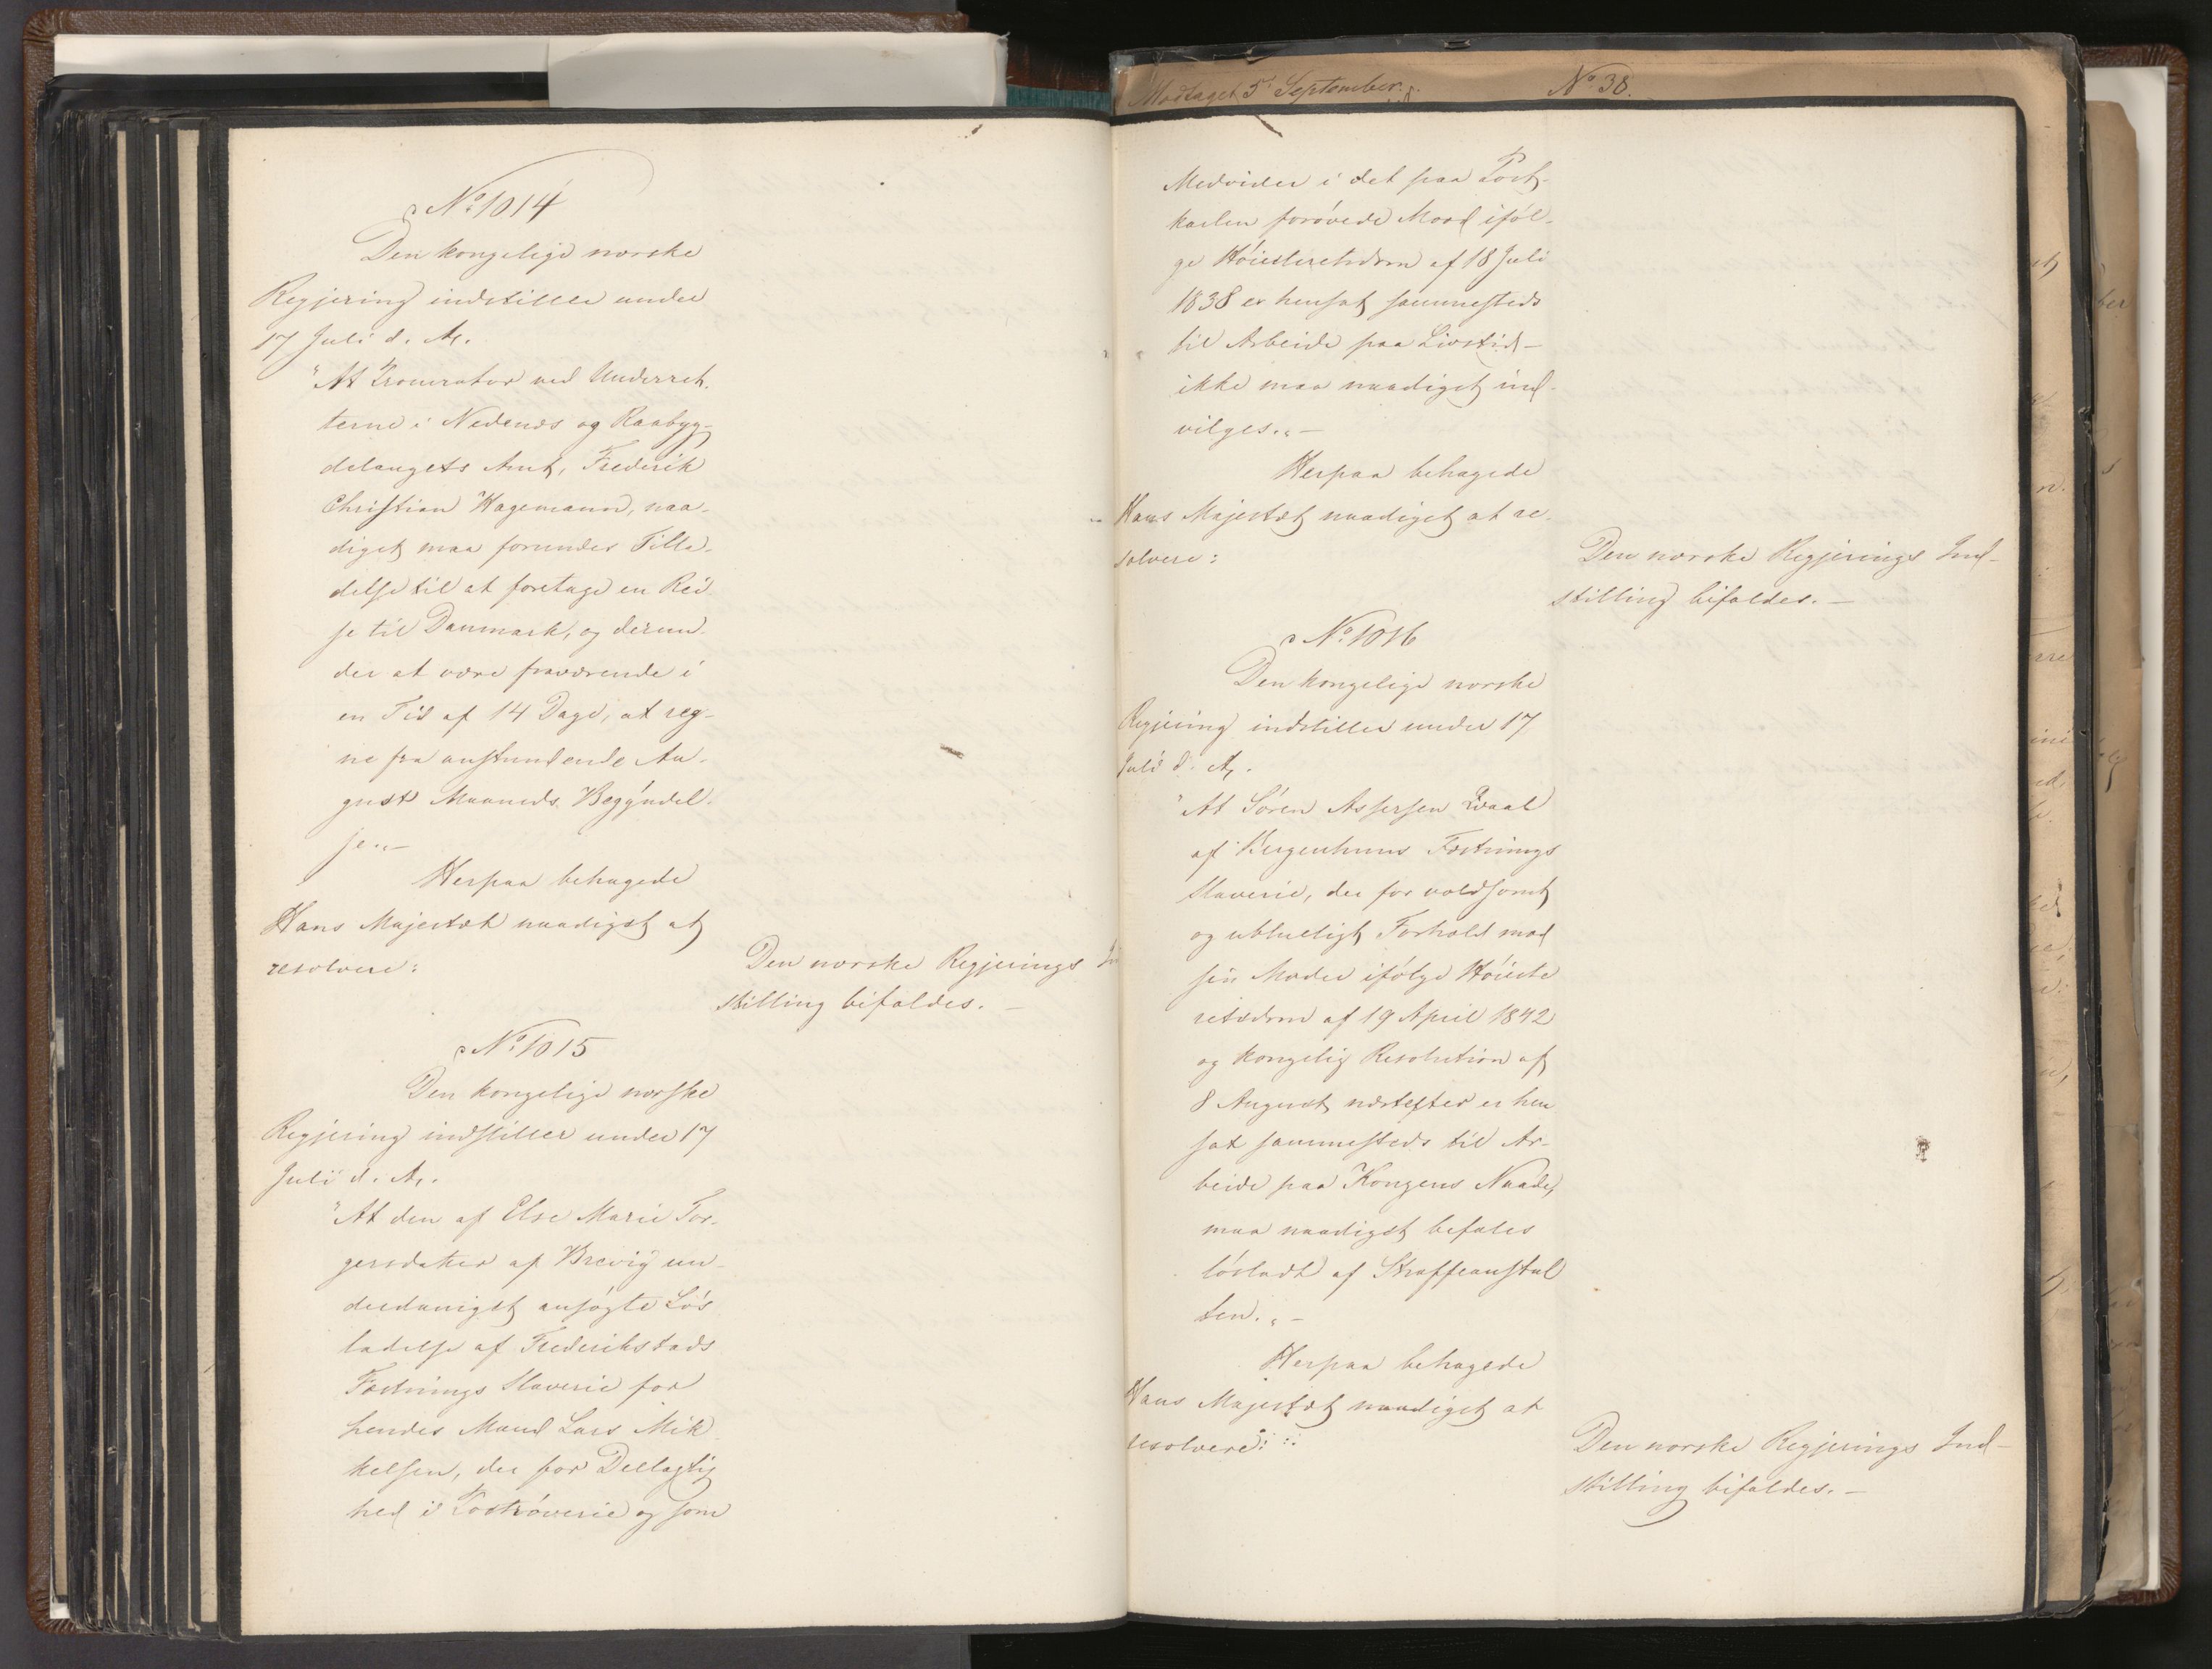 No 1014
Den kongelige norske
Regjering indstiller under
17 Juli d. A.
"At Procurator ved Underret-
terne i Nedenæs og Raabyg-
delaugets Amt, Frederik
Christian Hagemann, naa-
digst maa forundes Tilla-
delse til at foretage en Rei-
se til Danmark, og derun-
der at være fraværende i
en Tid af 14 Dage, at reg-
ne fra anstundende Au-
gust Maaneds Begyndel-
se."—
Herpaa behagede
Hans Majestæt naadigst at
resolvere:
Den norske Regjerings In
stilling bifaldes. —
No 1015
Den kongelige norske
Regjering indstiller under 17
Juli d. A.
"At den af Else Marie Tor-
gersdatter af Brevig un-
derdanigst ansøgte Løs-
ladelse af Frederikstads
Fæstnings Slaverie for
hendes Mand Lars Mik-
kelsen, der for Deelagtig
hed i Postrøverie og som
Modtaget 5t September.
No 38.
Medvider i det paa Post-
karlen forøvede Mord iføl-
ge Høiesteretsdom af 18 Juli
1838 er hensat sammesteds
til Arbeide paa Livstid —
ikke maa naadigst ind-
vilges." —
Herpaa behagede
Hans Majestæt naadigst at re-
solvere:
Den norske Regjerings Ind-
stilling bifaldes. —
No 1016
Den kongelige norske
Regjering indstiller under 17
Juli d. A.
"At Søren Assersen
af Bergenhuus Fæstnings
Slaverie, der for voldsomt
og utilueligt Forhold mod
sin Moder ifølge Høieste
retsdom af 19 April 1842
og kongelig Resolution af
8 August næstefter er hen
sat sammesteds til Ar-
beide paa Kongens Naade,
maa naadigst befales
løsladt af Straffeanstal
ten." —
Herpaa behagede
Hans Majestæt naadigst at
resolvere:
Den norske Regjerings Ind-
stilling bifaldes. —